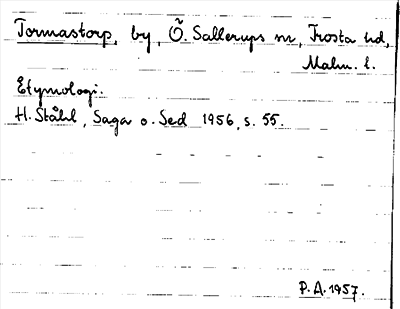 Tormastorp, by, Ö. Sallerups sn, Frosta hd,
Malm. l.
Etymologi.
H. Ståhl, Saga o. Sed 1956, s. 55.
P. A. 1957.